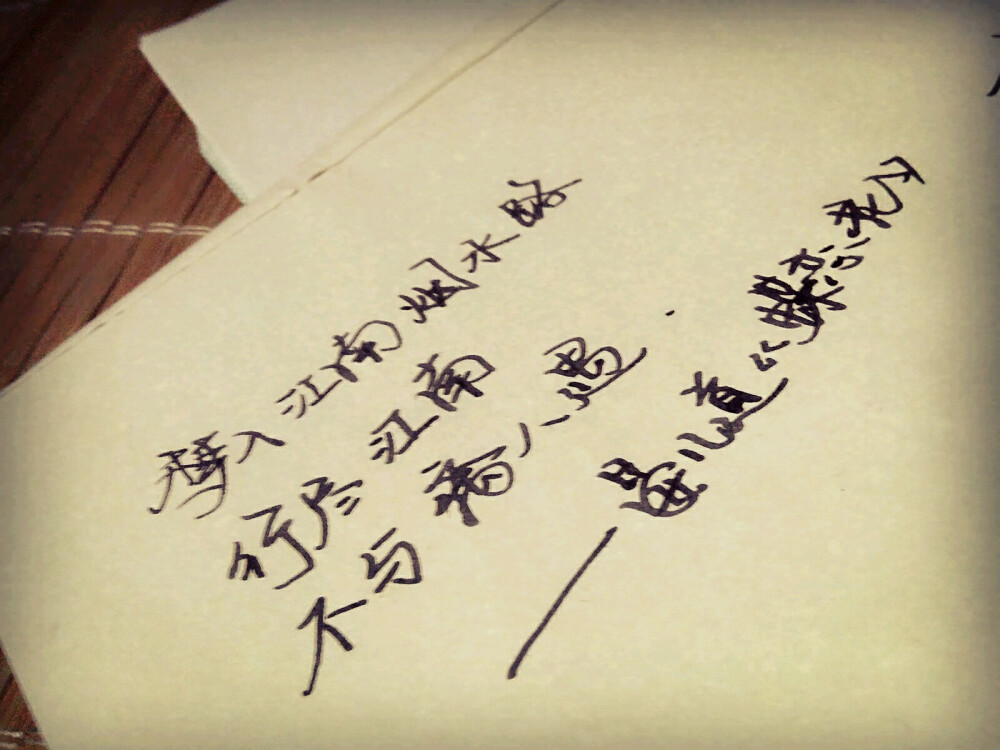 梦入江南烟水路
行尽江南
不与离人遇.
——晏几道《蝶恋花》